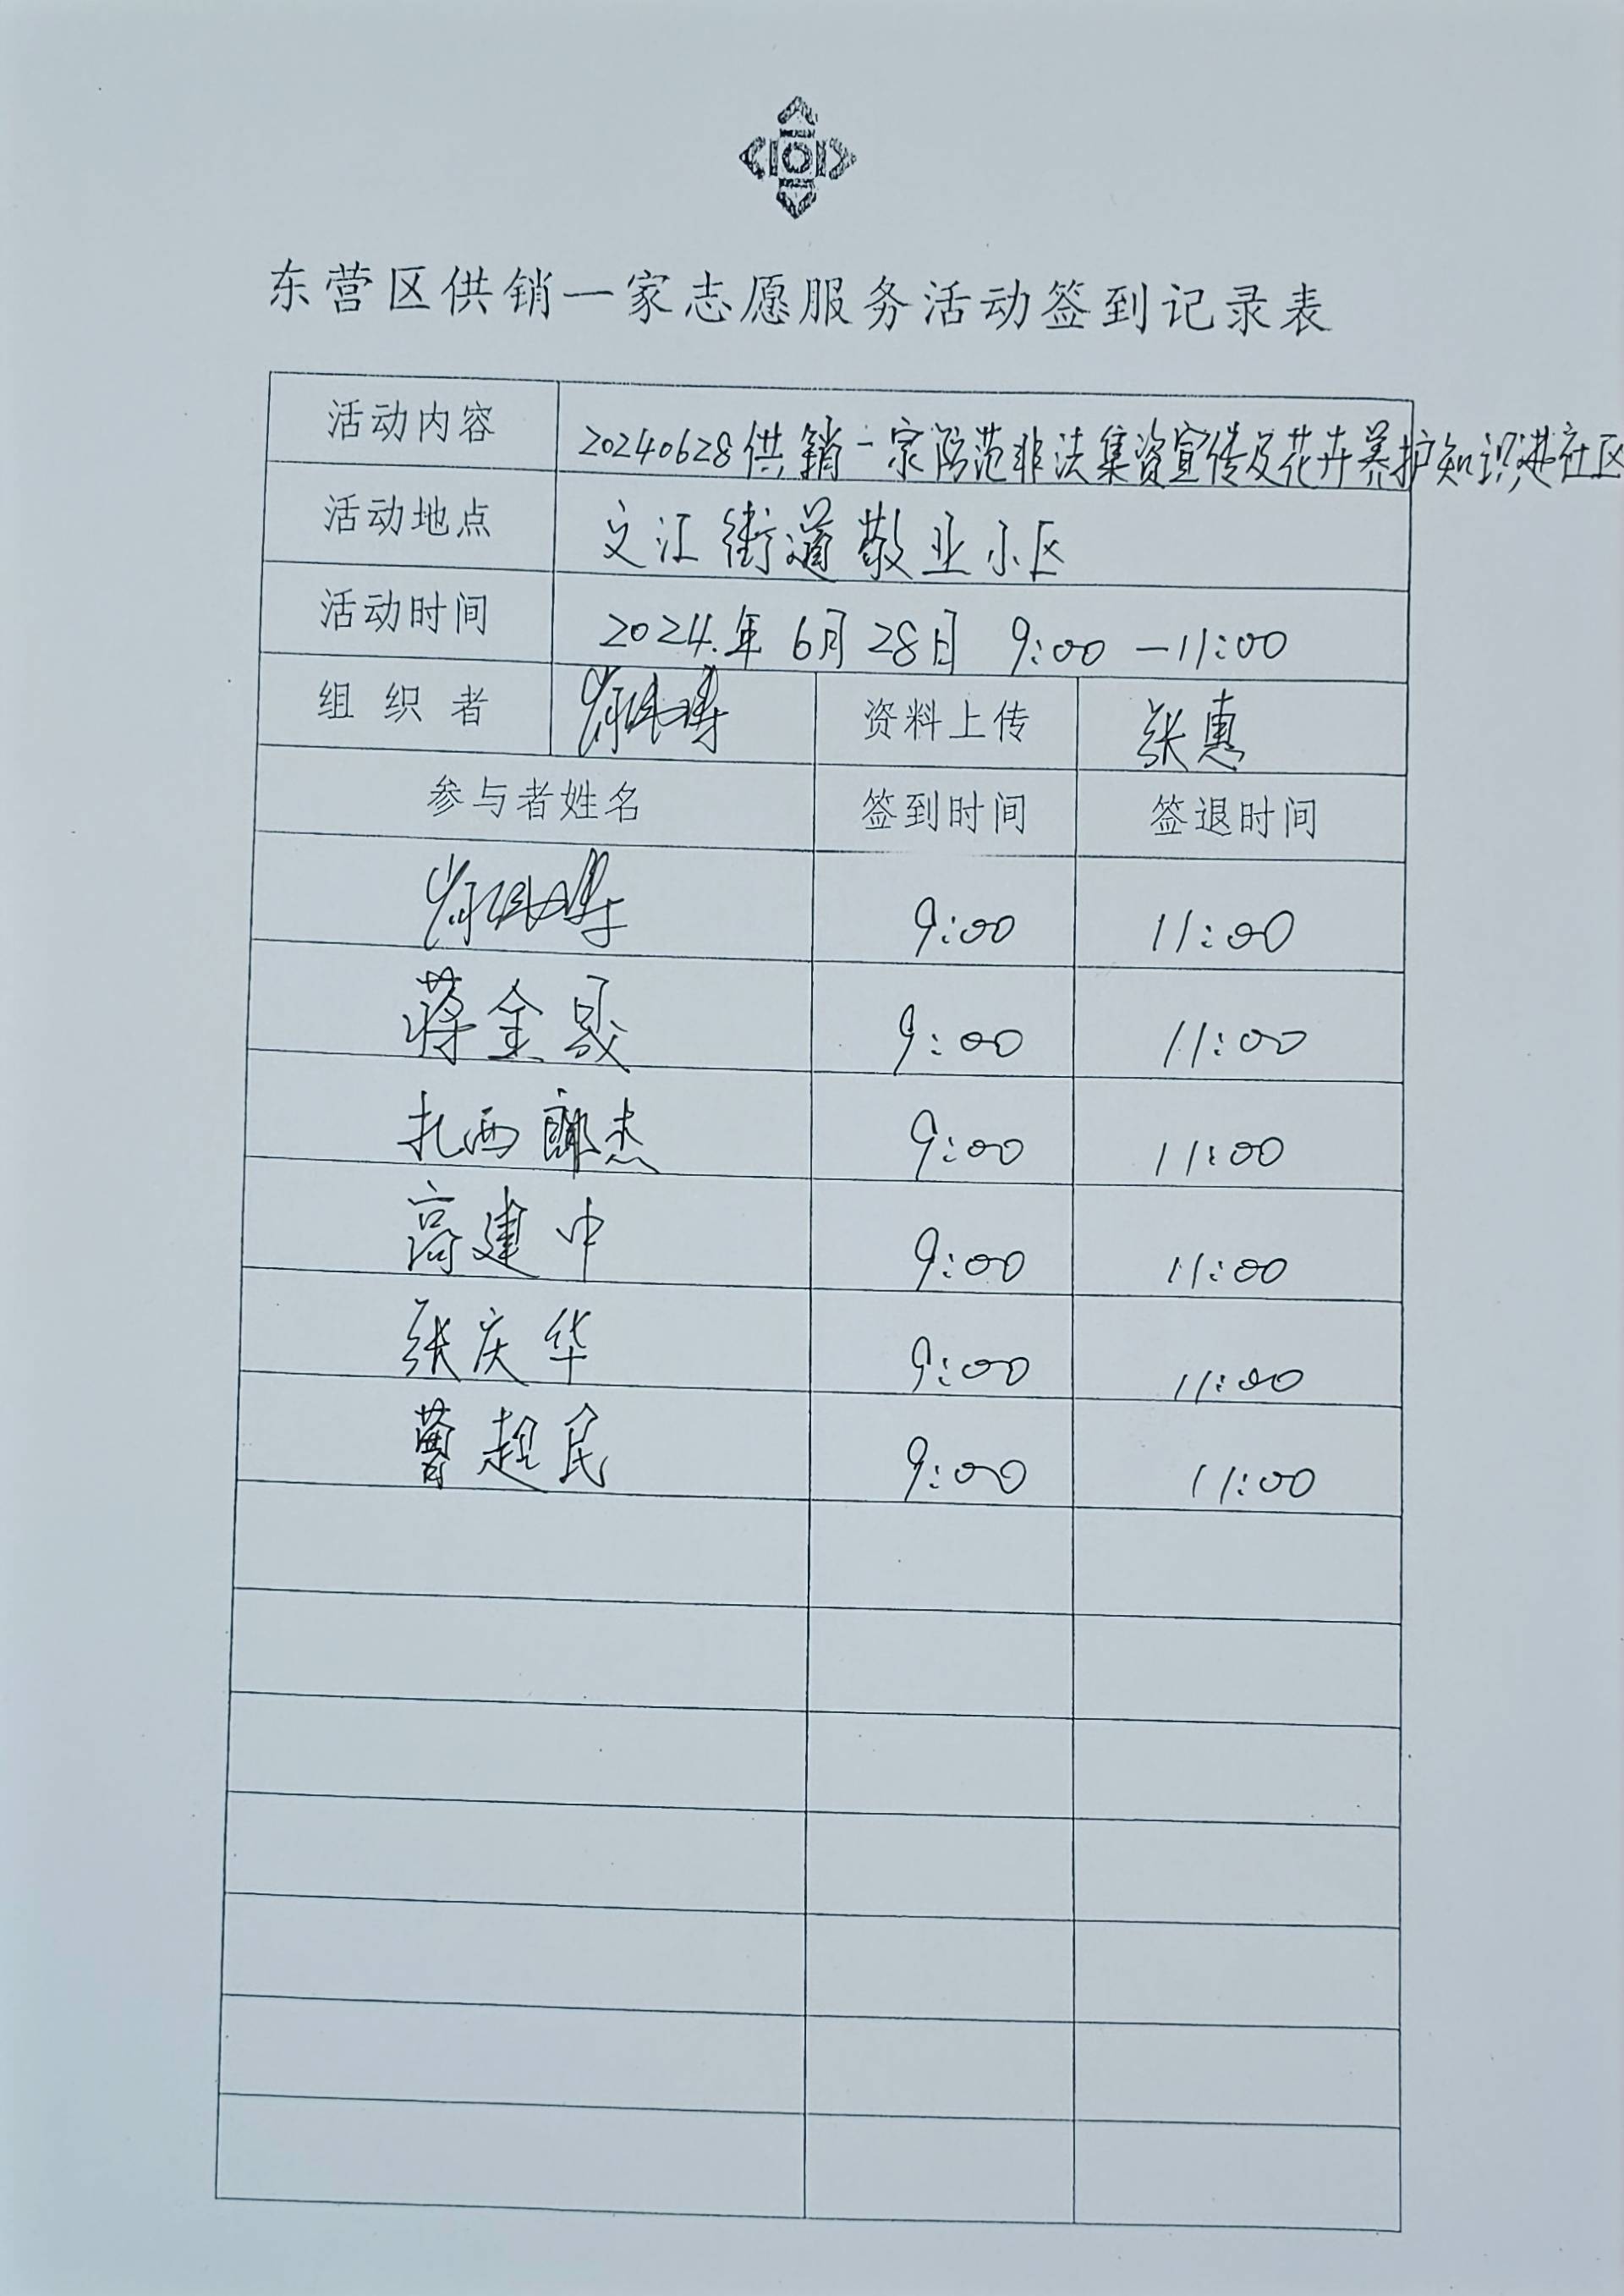 东营区供销一家志愿服务活动签到记录表
活动内容 20240628供销一家防范非法集资宣传及花卉养护知识进社区
活动地点 文汇街道敬业小区
活动时间 2024.年6月28日 9:00-11:00
组织者 资料上传 张惠
参与者姓名 签到时间 签退时间
9:00 11:00
蒋金晟 9:00 11:00
扎西郎杰 9:00 11:00
高建中 9:00 11:00
张庆华 9:00 11:00
超民 9:00 11:00